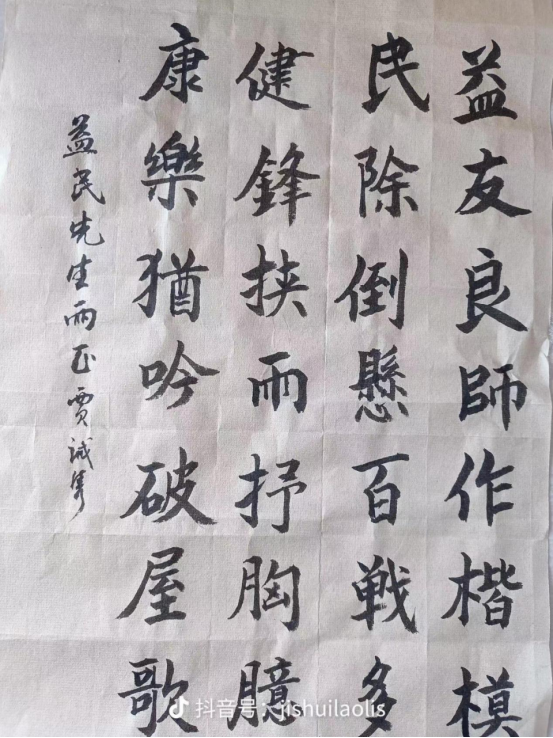 益友良師作楷模
民除倒懸百戰多
健鋒挟雨抒胸臆
康樂猶吟破屋歌
益民先生雨正贾诚
抖音号:jishuilaolis